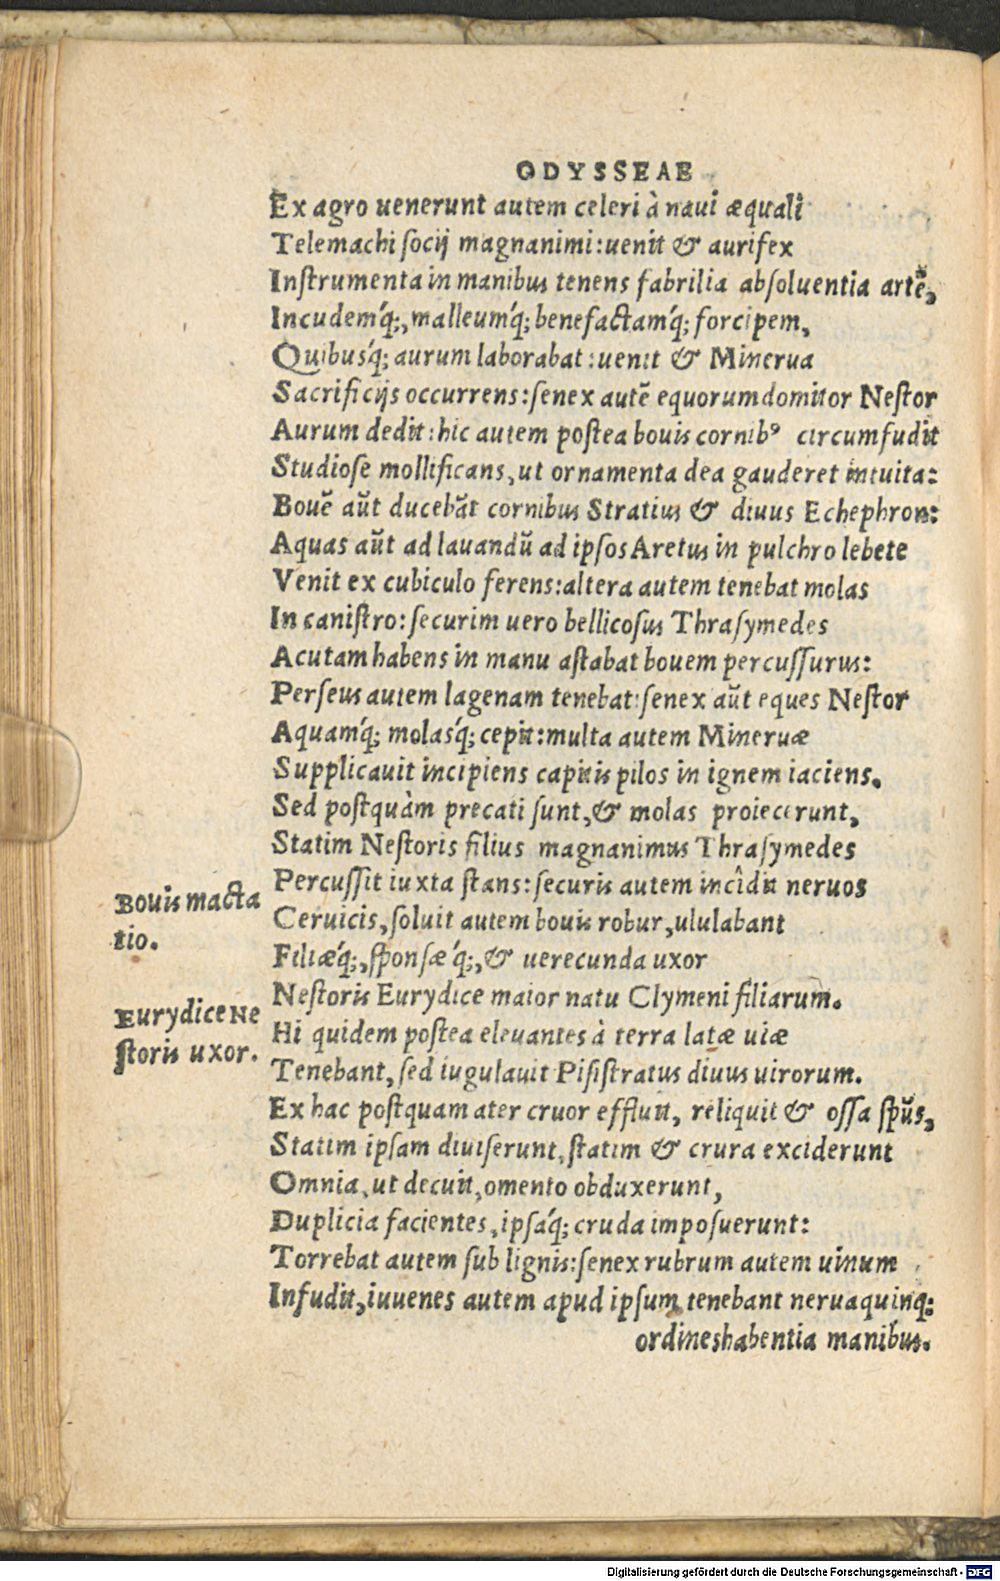 ODYSSEAE
Ex agro uenerunt autem celeri à naui æquali
Telemachi socij magnanimi: uenit & aurifex
Instrumenta in manibus tenens fabrilia absoluentia artẽ,
Incudemq́;, malleumq́; benefactamq́; forcipem,
Quibusq́; aurum laborabat: uenit & Minerua
Sacrificijs occurrens: senex autẽ equorum domitor Nestor
Aurum dedit: hic autem postea bouis cornibꝰ circumfudit
Studiose mollificans, ut ornamenta dea gauderet intuita:
Bouẽ aũt ducebãt cornibus Stratius & diuus Echephron:
Aquas aũt ad lauandũ ad ipsos Aretus in pulchro lebete
Venit ex cubiculo ferens: altera autem tenebat molas
In canistro: securim uero bellicosus Thrasymedes
Acutam habens in manu astabat bouem percussurus:
Perseus autem lagenam tenebat: senex aũt eques Nestor
Aquamq́; molasq́; cepit: multa autem Mineruæ
Supplicauit incipiens capitis pilos in ignem iaciens.
Sed postquàm precati sunt, & molas proiecerunt,
Statim Nestoris filius magnanimus Thrasymedes
Bouis macta
tio.
Percussit iuxta stans: securis autem incîdit neruos
Ceruicis, soluit autem bouis robur, ululabant
Filiæq́;, sponsæq́;, & uerecunda uxor
Eurydice Ne
storis uxor.
Nestoris Eurydice maior natu Clymeni filiarum.
Hi quidem postea eleuantes à terra latæ uiæ
Tenebant, sed iugulauit Pisistratus diuus uirorum.
Ex hac postquam ater cruor effluit, reliquit & ossa spũs,
Statim ipsam diuiserunt, statim & crura exciderunt
Omnia, ut decuit, omento obduxerunt,
Duplicia facientes, ipsáq; cruda imposuerunt:
Torrebat autem sub lignis: senex rubrum autem uinum
Infudit, iuuenes autem apud ipsum tenebant nerua quinq;
ordines habentia manibus.
Digitalisierung gefördert durch die Deutsche Forschungsgemeinschaft - DFG